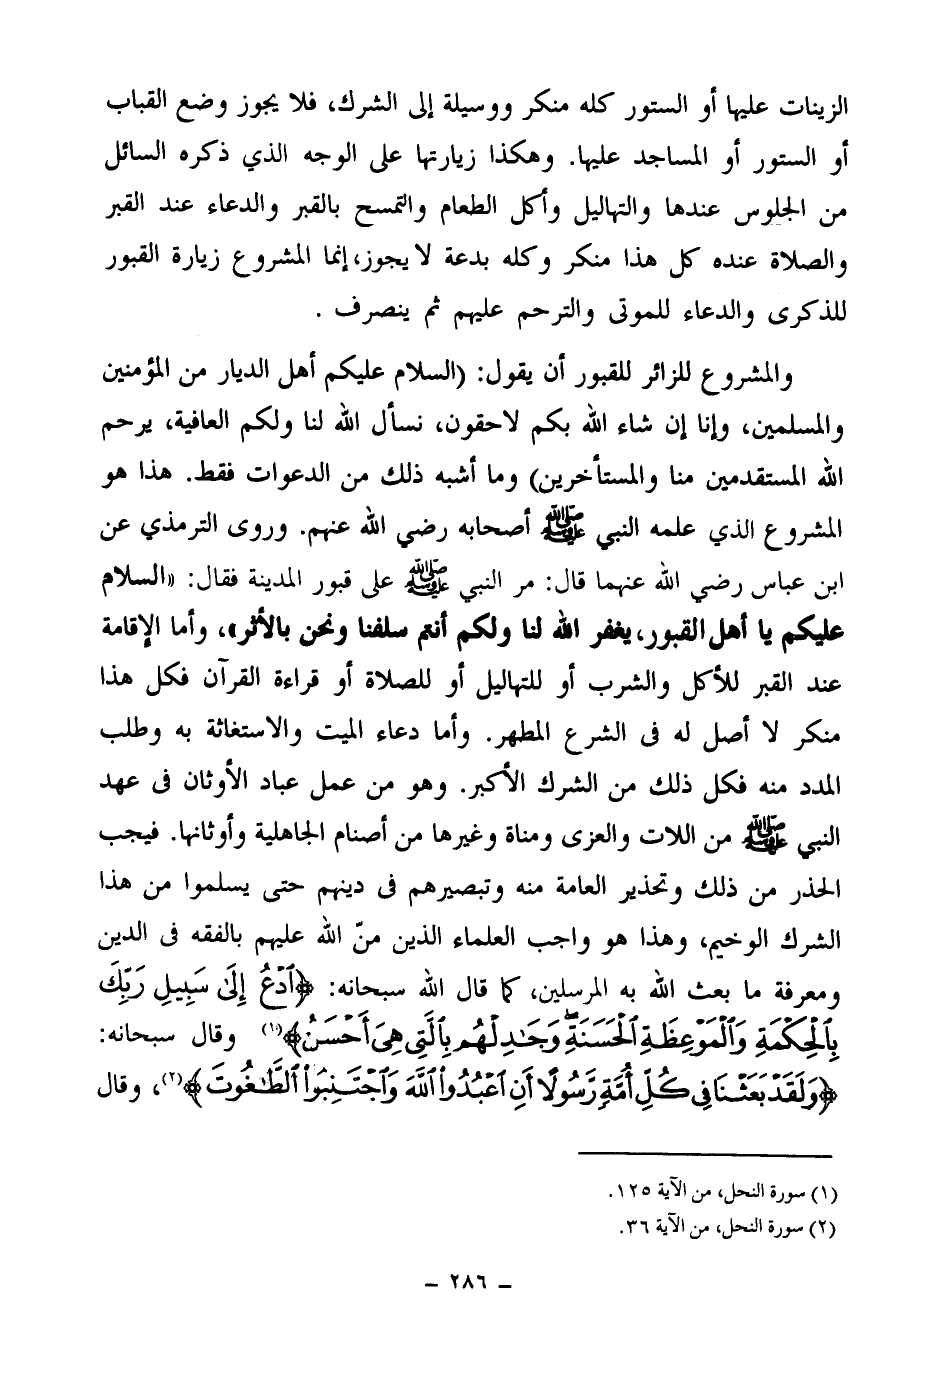 الزينات عليها أو الستور كله منكر ووسيلة إلى الشرك، فلا يجوز وضع القباب
أو الستور أو المساجد عليها. وهكذا زيارتها على الوجه الذي ذكره السائل
من الجلوس عندها والتهاليل وأكل الطعام والتمسح بالقبر والدعاء عند القبر
والصلاة عنده كل هذا منكر وكله بدعة لا يجوز، إنما المشروع زيارة القبور
للذكرى والدعاء للموتى والترحم عليهم ثم ينصرف .
والمشروع للزائر للقبور أن يقول: (السلام عليكم أهل الديار من المؤمنين
والمسلمين، وإنا إن شاء الله بكم لاحقون، نسأل الله لنا ولكم العافية، يرحم
الله المستقدمين منا والمستأخرين) وما أشبه ذلك من الدعوات فقط. هذا هو
المشروع الذي علمه النبي ﷺ أصحابه رضي الله عنهم. وروى الترمذي عن
ابن عباس رضي الله عنهما قال: مر النبي ﷺ على قبور المدينة فقال: «السلام
عليكم يا أهل القبور، يغفر الله لنا ولكم أنتم سلفنا ونحن بالأثر»، وأما الإقامة
عند القبر للأكل والشرب أو للتهاليل أو للصلاة أو قراءة القرآن فكل هذا
منكر لا أصل له فى الشرع المطهر. وأما دعاء الميت والاستغاثة به وطلب
المدد منه فكل ذلك من الشرك الأكبر. وهو من عمل عباد الأوثان فى عهد
النبي ﷺ من اللات والعزى ومناة وغيرها من أصنام الجاهلية وأوثانها. فيجب
الحذر من ذلك وتحذير العامة منه وتبصيرهم فى دينهم حتى يسلموا من هذا
الشرك الوخيم، وهذا هو واجب العلماء الذين منّ الله عليهم بالفقه فى الدين
ومعرفة ما بعث الله به المرسلين، كما قال الله سبحانه: ﴿ٱدۡعُ إِلَىٰ سَبِيلِ رَبِّكَ
بِٱلۡحِكۡمَةِ وَٱلۡمَوۡعِظَةِ ٱلۡحَسَنَةِۖ وَجَٰدِلۡهُم بِٱلَّتِي هِيَ أَحۡسَنُ﴾(١) وقال سبحانه:
﴿وَلَقَدۡ بَعَثۡنَا فِي كُلِّ أُمَّةٖ رَّسُولًا أَنِ ٱعۡبُدُواْ ٱللَّهَ وَٱجۡتَنِبُواْ ٱلطَّٰغُوتَ﴾(٢)، وقال
(١) سورة النحل، من الآية ١٢٥.
(٢) سورة النحل، من الآية ٣٦.
– ٢٨٦ –